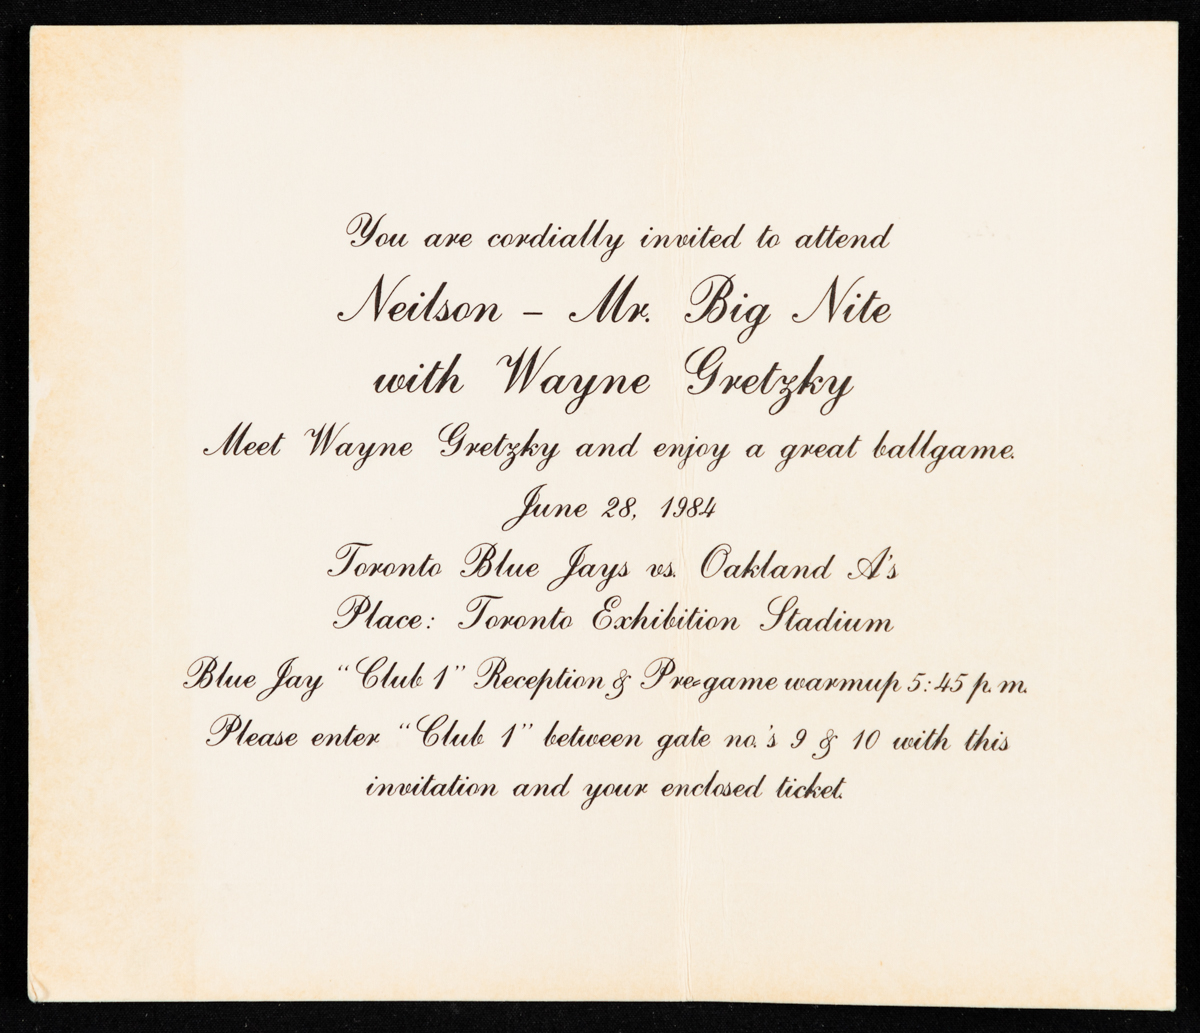 You are cordially invited to attend
Neilson – Mr. Big Nite
with Wayne Gretzky
Meet Wayne Gretzky and enjoy a great ballgame.
June 28, 1984
Toronto Blue Jays vs. Oakland A's
Place: Toronto Exhibition Stadium
Blue Jay “Club 1” Reception & Pre-game warmup 5:45 p.m.
Please enter “Club 1” between gate no.'s 9 & 10 with this
invitation and your enclosed ticket.